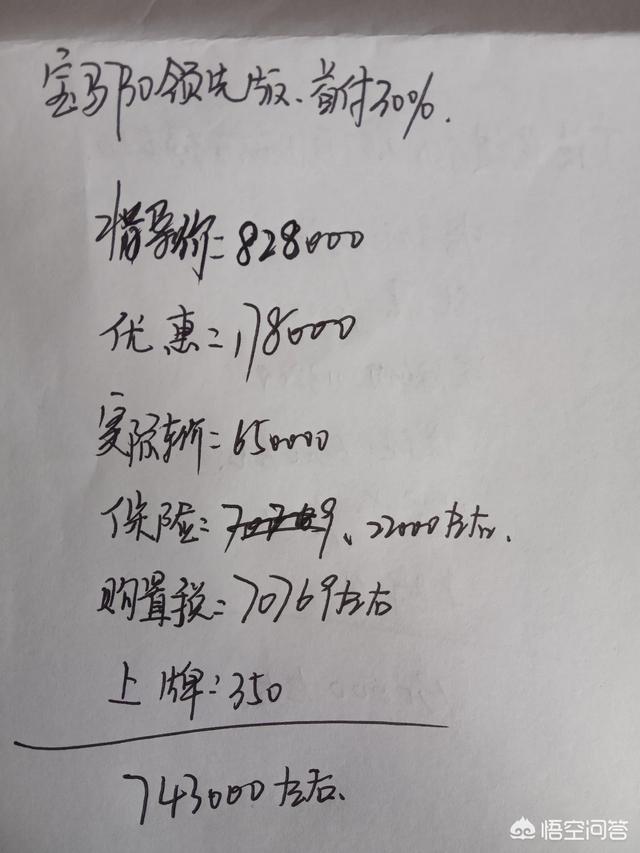 宝马730领先版、首付30%.
指导价=828000
优惠=178000
实际车价=650000
保险=、22000左右.
购置税=70769左右
上牌:350
743000左右.
悟空问答